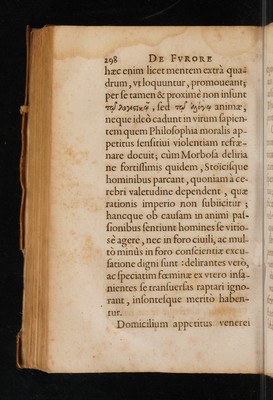 298 DE FVRORE
hæc enim licet mentem extrà qua-
drum, vt loquuntur, promoueant;
per se tamen & proximè non insunt
τῷ λογικῷ, sed τῷ ἀλόγῳ animæ,
neque ideò cadunt in virum sapien-
tem quem Philosophia moralis ap-
petitus sensitiui violentiam refræ-
nare docuit; cùm Morbosa deliria
ne fortissimis quidem, Stoicisque
hominibus parcant, quoniam à ce-
rebri valetudine dependent, quæ
rationis imperio non subiicitur;
hancque ob causam in animi pas-
sionibus sentiunt homines se vitio-
sè agere, nec in foro ciuili, ac mul-
tò minùs in foro conscientiæ excu-
satione digni sunt: delirantes verò,
ac speciatim fœminæ ex vtero insa-
nientes se transuersas raptari igno-
rant, insontesque meritò haben-
tur.
Domicilium appetitus venerei